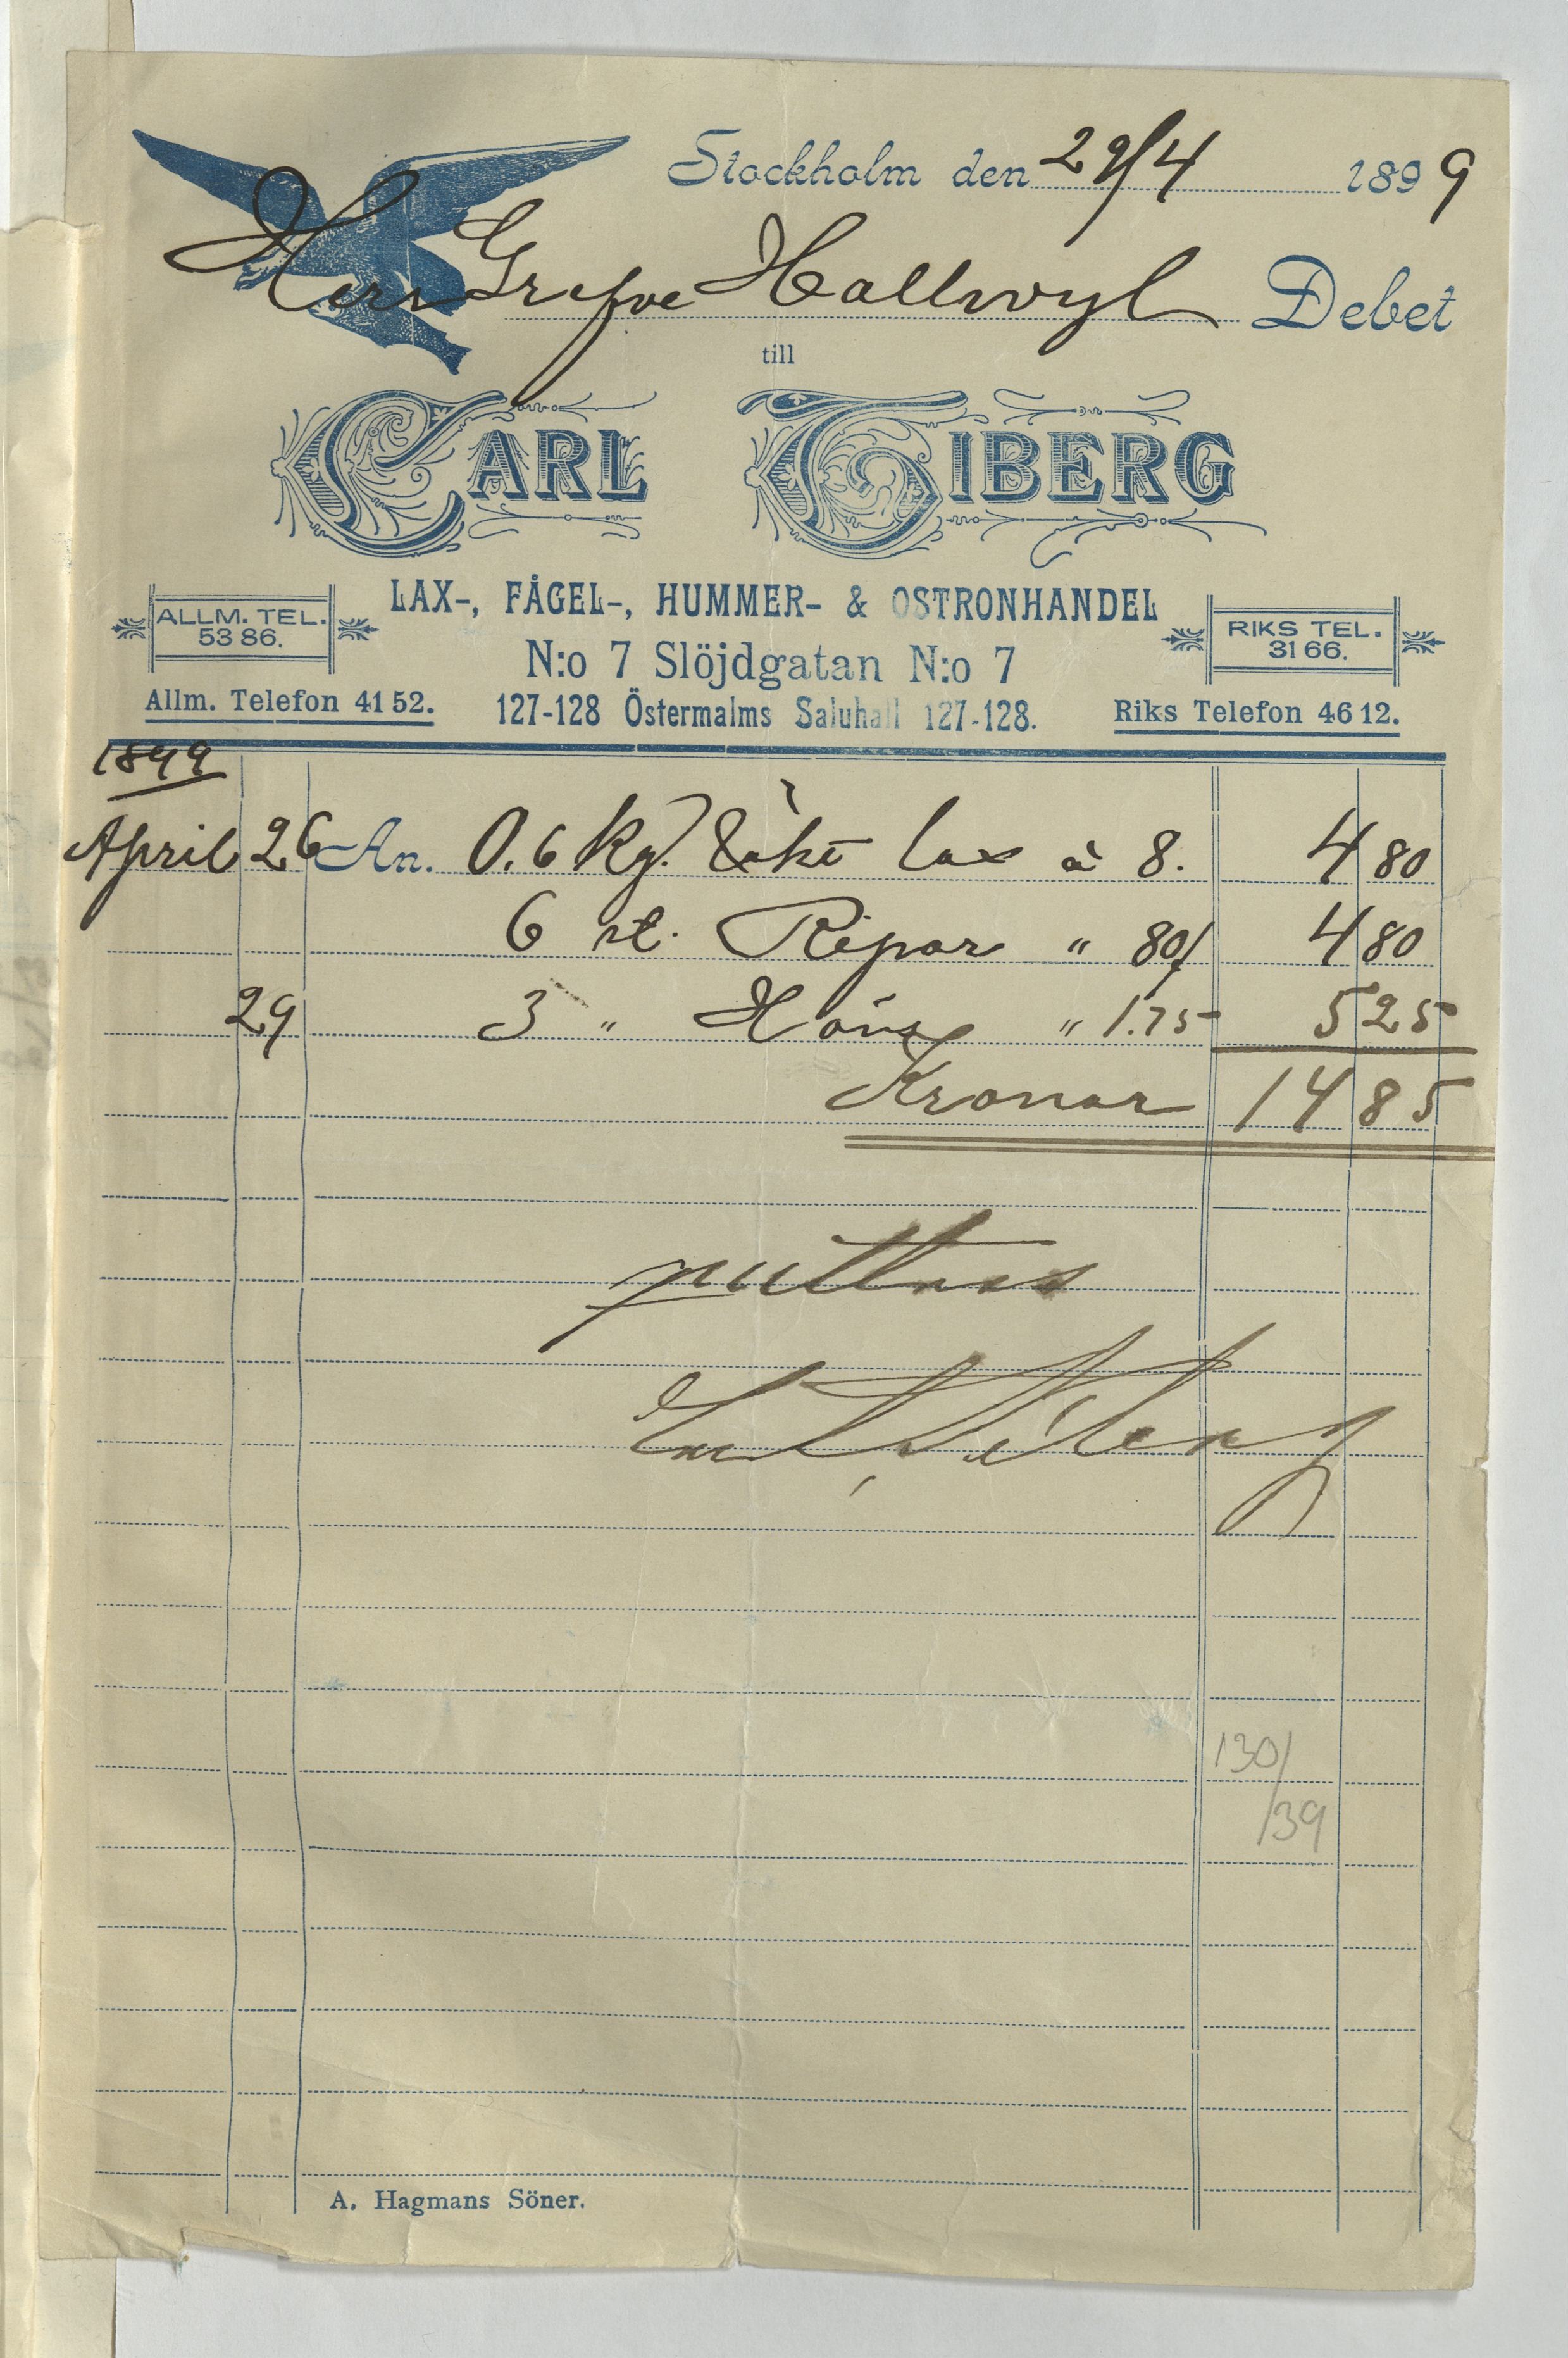 Stockholm den 29/4 1899
Herr Grefve Hallwyl Debet
till
CARL TIBERG
LAX-, FÅGEL-, HUMMER- & OSTRONHANDEL
ALLM. TEL. 5386.
RIKS TEL. 3166.
N:o 7 Slöjdgatan N:o 7
Allm. Telefon 4152. 127-128 Östermalms Saluhall 127-128. Riks Telefon 4612.
1899
April 26 An. 0.6 kg. Rökt lax à 8. 4 80
6 st. Ripor " 80/ 4 80
29 3 " Höns " 1.75 5 25
Kronor 14 85
qvitteras
Carl Tiberg
130/
/39
A. Hagmans Söner.